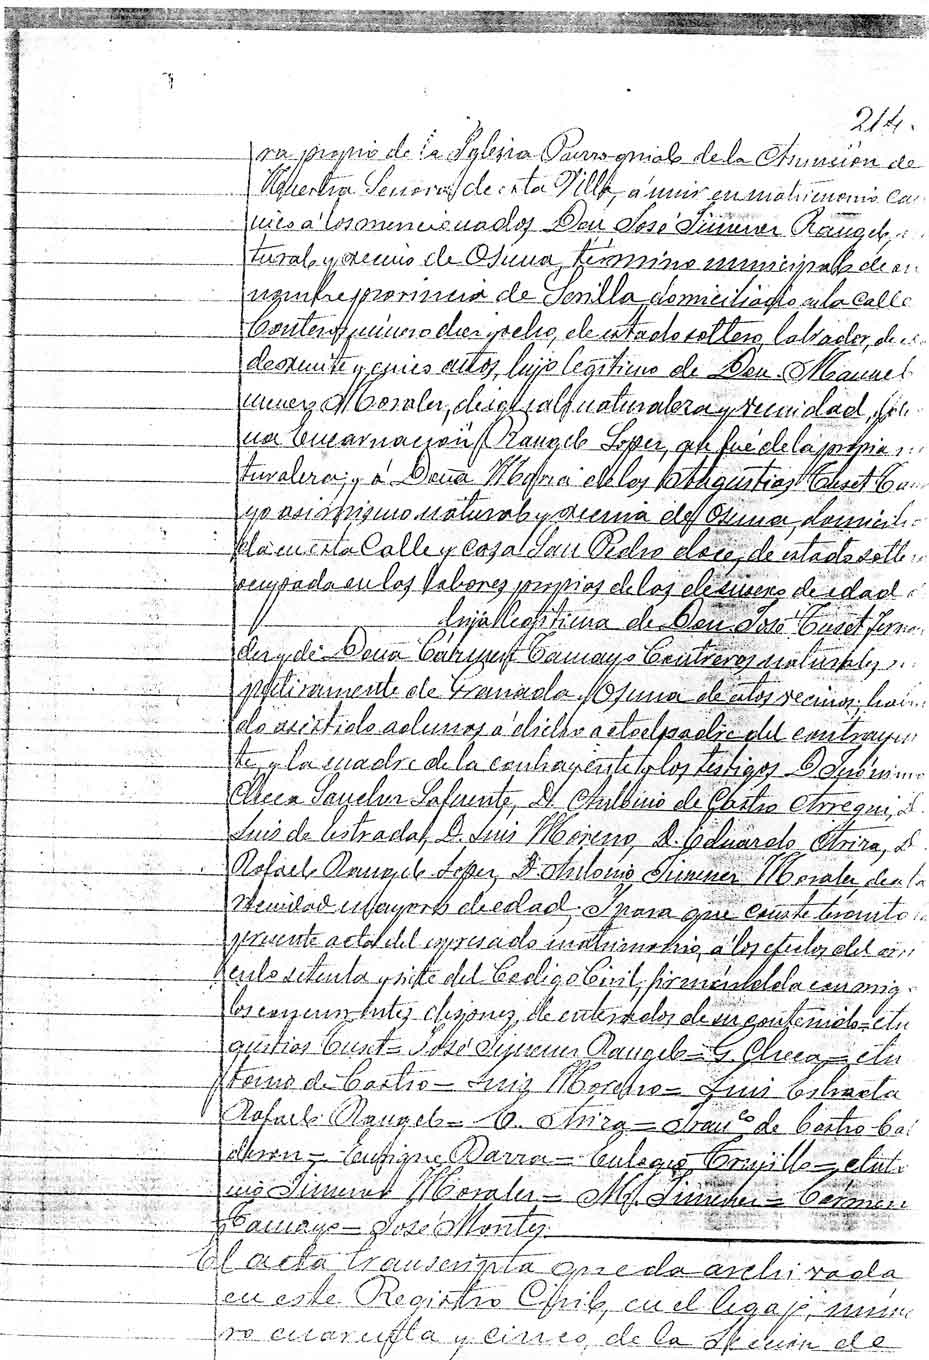 214.
ra propio de la Iglesia Parroquial de la Asunción de
Nuestra Señora, de esta Villa, á unir en matrimonio ca
nico á los mencionados Don José Jimenez Rangel,
tural y vecino de Osuna, término municipal de su
nombre provincia de Sevilla, domiciliado en la Calle
número diez y ocho, de estado soltero, labrador, de e
de veinte y cinco años, hijo legitimo de Don Manuel
menez Morales, de igual naturaleza y vecindad,
na Encarnación Rangel Lopez, que fué de la propia n
turaleza; y á Doña Maria de las Angustias Tuset Tam
yo asimismo natural y vecina de Osuna, domicilia
da en esta Calle y casa San Pedro doce, de estado solte
ocupada en las labores propias de las de su sexo de edad
hija legitima de Don José Tuset Ferna
dez y de Doña Cármen Tamayo Contreras naturales
pectivamente de Granada y Osuna de esta vecinos; habi
do asistido ademas á dicho acto el padre del contrayen
te, y la madre de la contrayente y los testigos D. Jerónimo
Checa Sanchez Lafuente, D. Antonio de Castro Arregui, D.
Luis de Estrada, D. Luis Moreno, D. Eduardo Ariza, D.
Rafael Rangel Lopez, D. Antonio Jimenez Morales de esta
vecindad mayores de edad, Y para que conste levanto
presente acta del espresado matrimonio, á los efectos del arti
culo setenta y siete del Código Civil, firmándola conmig
los concurrentes despues de enterados de su contenido = An
gustias Tuset = José Jimenez Rangel = G. Checa = An
tonio de Castro = Luis Moreno = Luis Estrada
Rafael Rangel = E. Ariza = Franco de Castro Cal
deron = Enrique Barra = Eulogio Trujillo = Anto
nio Jimenez Morales = Ml. Jimenez = Cármen
Tamayo = José Montes
El acta transcripta queda archivada
en este Registro Civil, en el legajo núme
ro cuarenta y cinco, de la Sección de